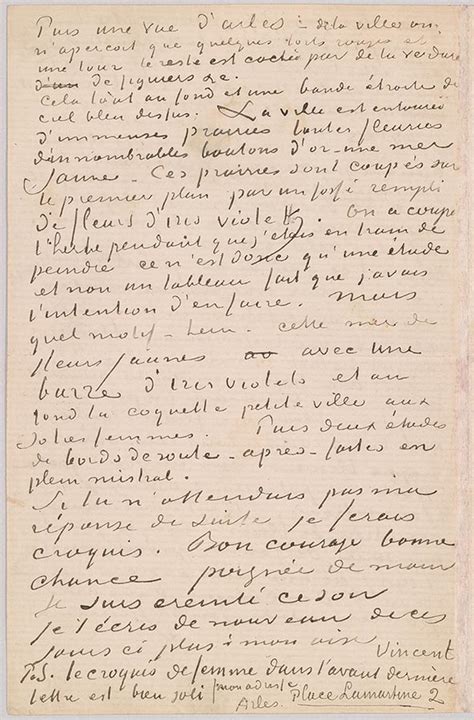 Puis une vue d'Arles – de la ville on
n'aperçoit que quelques toits rouges et
une tour le reste est caché par de la verdure
de figuiers &c.
cela tout au fond et une bande étroite de
ciel bleu dessus. La ville est entourée
d'immenses prairies toutes fleuries
d'innombrables boutons d'or – une mer
jaune – Ces prairies sont coupés sur
le premier plan par un fossé rempli
de fleurs d'Iris violets. On a coupé
l'herbe pendant que j'étais en train de
peindre ce n'est donc qu'une étude
et non un tableau fait que j'avais
l'intention d'en faire. Mais
quel motif – hein. cette mer de
fleurs jaunes avec une
barre d'Iris violets et au
fond la coquette petite ville aux
jolies femmes. Puis deux études
de bords de route – après – faites en
plein mistral.
Si tu n'attendais pas ma
réponse de suite je ferais
croquis. Bon courage bonne
chance poignée de main
Je suis ereinté ce soir
je t'écris de nouveau de ces
jours ci plus à mon aise
Vincent
P.S. le croquis de femme dans l'avant dernière
lettre est bien joli / mon adresse
Arles. Place Lamartine 2